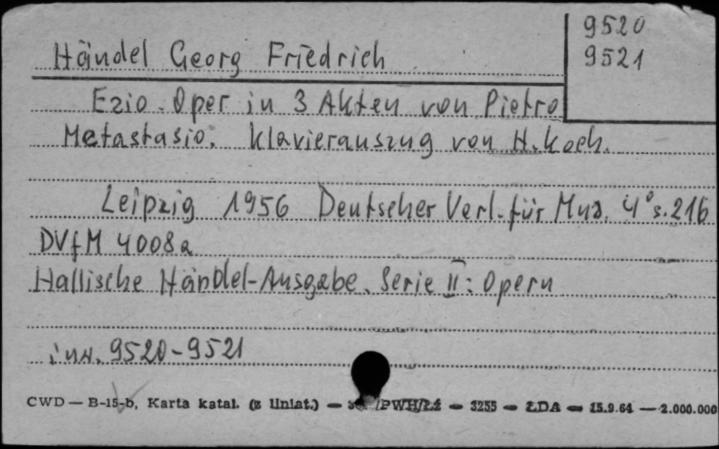 9520
9521
Händel Georg Friedrich
Ezio. Oper in 3 Akten von Pietro
Metastasio. Klavierauszug von H. Koch.
Leipzig 1956 Deutscher Verl. für Mus. 4° s. 216
DVfM 4008a
Hallische Händel-Ausgabe. Serie II: Opern
inw. 9520-9521
CWD — B-15-b, Karta katal. (z liniat.) — /PWH/Łż — 3255 — ŁDA — 15.9.64 — 2.000.000